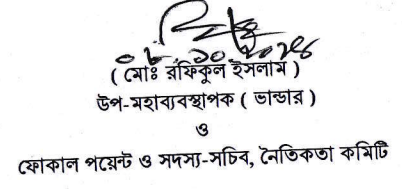 ( মোঃ রফিকুল ইসলাম )
উপ-মহাব্যবস্থাপক ( ভান্ডার )
ও
ফোকাল পয়েন্ট ও সদস্য-সচিব, নৈতিকতা কমিটি